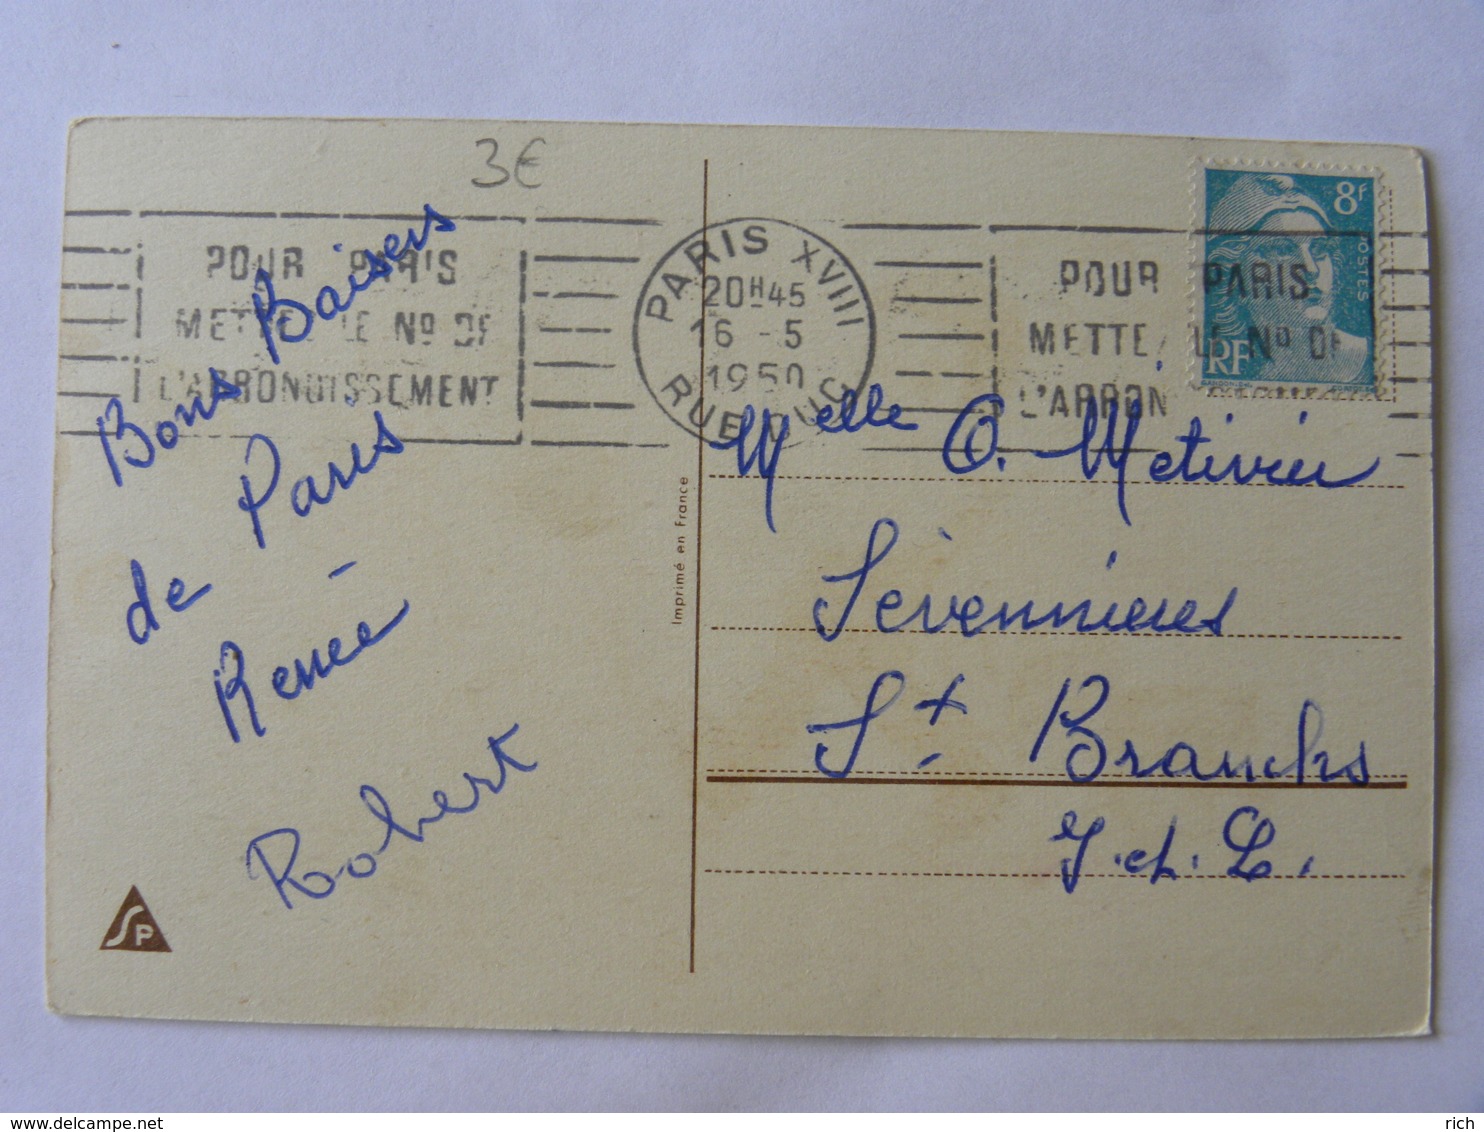 3€
POUR PARIS
METTEZ LE Nº DE
L'ARRONDISSEMENT
PARIS XVIII
20H45
16 - 5
1950
RUE DUC
POUR PARIS
METTEZ LE Nº DE
L'ARRON
8F
POSTES
RF
Bons Baisers
de Paris
Renée
Robert
SP
Imprimé en France
Melle O. Metivier
Sévennières
St Branchs
I.et.L.
delcampe.net
rich